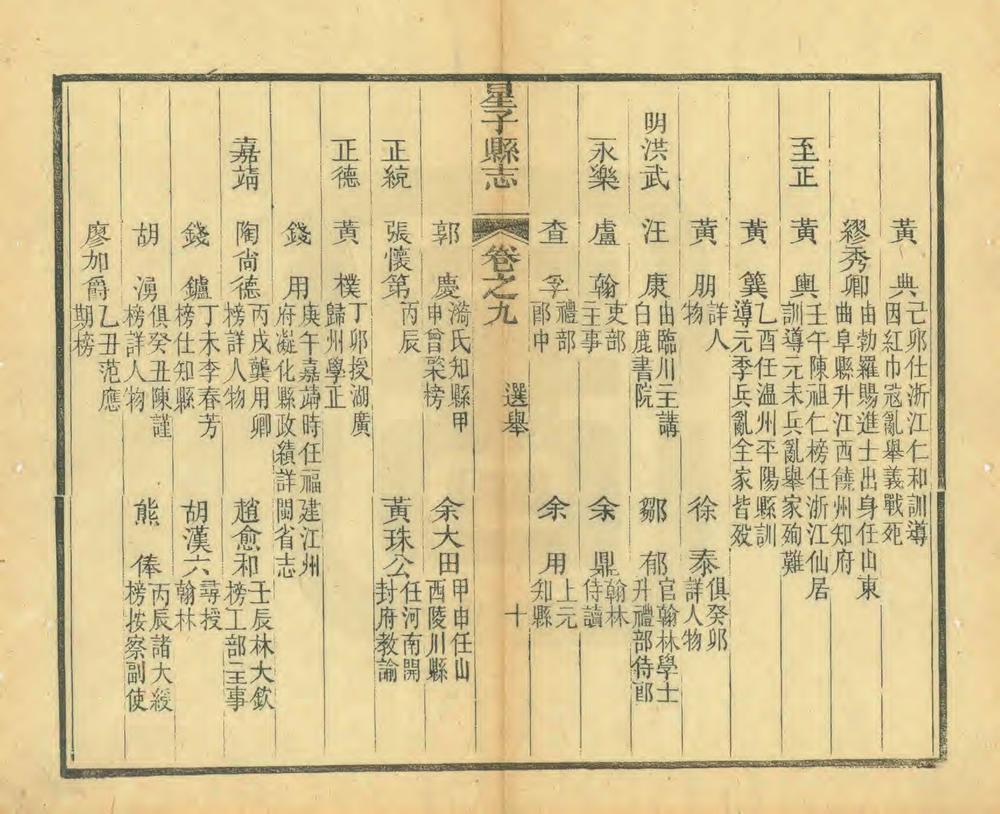 黃典 己卯仕浙江仁和訓導
因紅巾寇亂舉義戰死
繆秀卿 由勃羅賜進士出身任山東
曲阜縣升江西饒州知府
至正 黃輿 壬午陳祖仁榜任浙江仙居
訓導元末兵亂舉家殉難
黃簨 乙酉任溫州平陽縣訓
導元季兵亂全家皆歿
黃朋 詳人
物
徐泰 俱癸卯
詳人物
明洪武 汪康 由臨川主講
白鹿書院
鄒郁 官翰林學士
升禮部侍郎
永樂 盧翰 吏部
主事
余鼎 翰林
侍讀
查孚 禮部
郎中
余用 上元
知縣
星子縣志 卷之九 選舉 十
郭慶 漪氏知縣甲
申曾棨榜
余大田 甲申任山
西陵川縣
正統 張懷第 丙辰
黃珠公 任河南開
封府教諭
正德 黃樸 丁卯授湖廣
歸州學正
錢用 庚午嘉靖時任福建江州
府凝化縣政績詳閩省志
嘉靖 陶尚德 丙戌龔用卿
榜詳人物
趙愈和 壬辰林大欽
榜工部主事
錢鑪 丁未李春芳
榜仕知縣
胡漢六 尋授
翰林
胡湧 俱癸丑陳謹
榜詳人物
熊俸 丙辰諸大綬
榜按察副使
廖加爵 乙丑范應
期榜